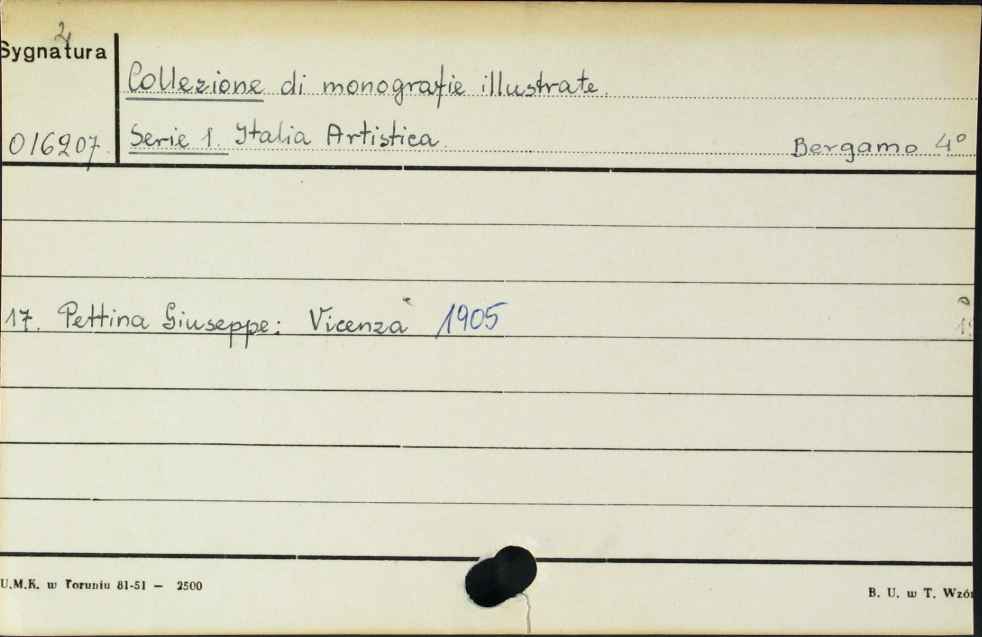 2
Sygnatura
Collezione di monografie illustrate.
016207.
Serie 1. Italia Artistica
Bergamo 4°
17. Pettina Giuseppe: Vicenza 1905
U.M.K. w Toruniu 81-51 — 2500
B. U. w T. Wzór